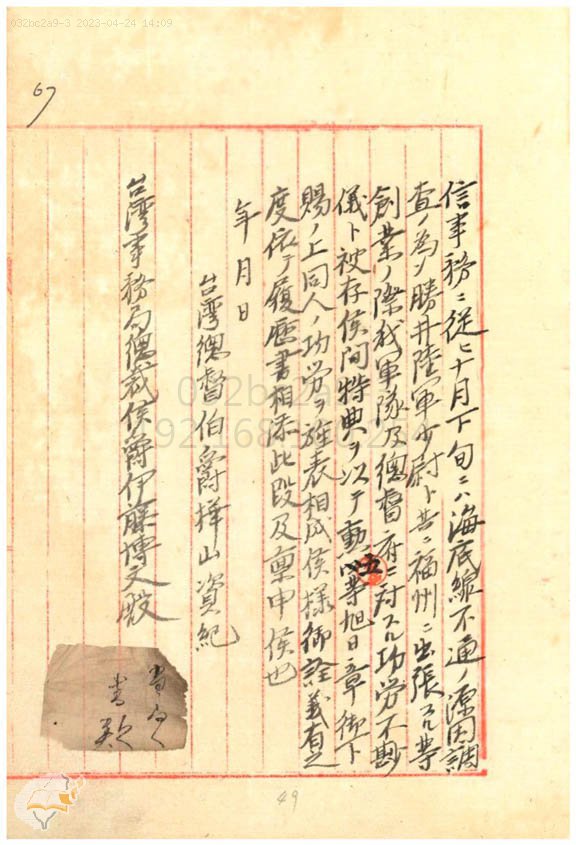 032bc2a9-3 2023-04-24 14:09
67
信事務ニ従ヒ十月下旬ニハ海底線不通ノ源因調
査ノ為メ勝井陸軍少尉ト共ニ福州ニ出張スル等
創業ノ際我軍隊及總督府ニ対スル功労不尠
儀ト被存候間特典ヲ以テ勲五等旭日章御下
賜ノ上同人ノ功労ヲ旌表相成候様御詮義有之
度依テ履歴書相添此段及稟申候也
年月日
台湾總督伯爵樺山資紀
台湾事務局總裁侯爵伊藤博文殿
49